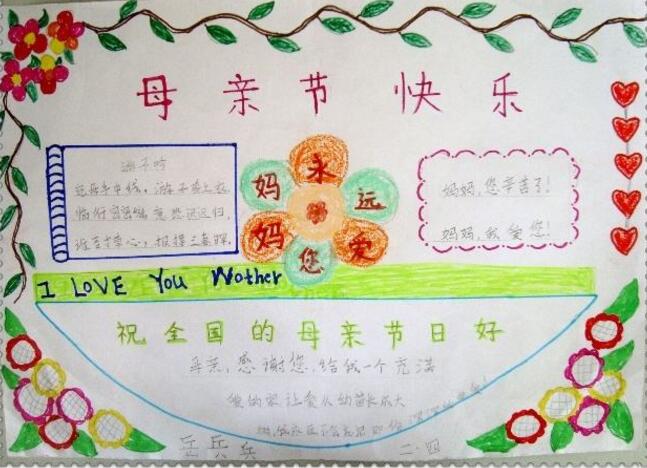 母亲节快乐
游子吟
慈母手中线，游子身上衣，
临行密密缝，意恐迟迟归，
谁言寸草心，报得三春晖。
妈 永 远
妈 您 爱
妈妈，您辛苦了！
妈妈，我爱您！
I LOVE You Wother
祝全国的母亲节日好
母亲，感谢您，给我一个充满
爱的家，让爱从幼苗长大
二·四